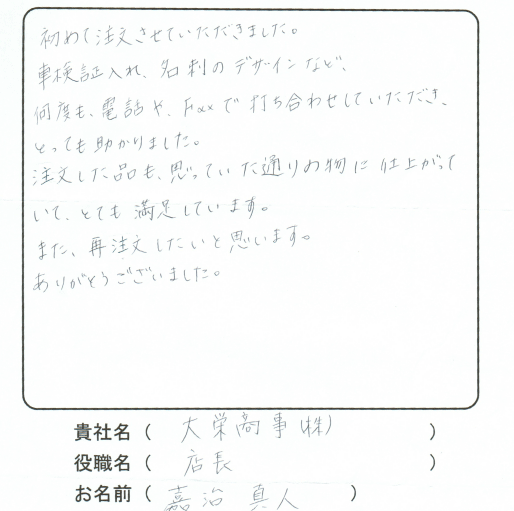 初めて注文させていただきました。
車検証入れ、名刺のデザインなど、
何度も、電話や、Faxで打ち合わせしていただき、
とっても助かりました。
注文した品も、思っていた通りの物に仕上がって
いて、とても満足しています。
また、再注文したいと思います。
ありがとうございました。
貴社名（ 大栄商事(株) ）
役職名（ 店長 ）
お名前（ 嘉治 真人 ）